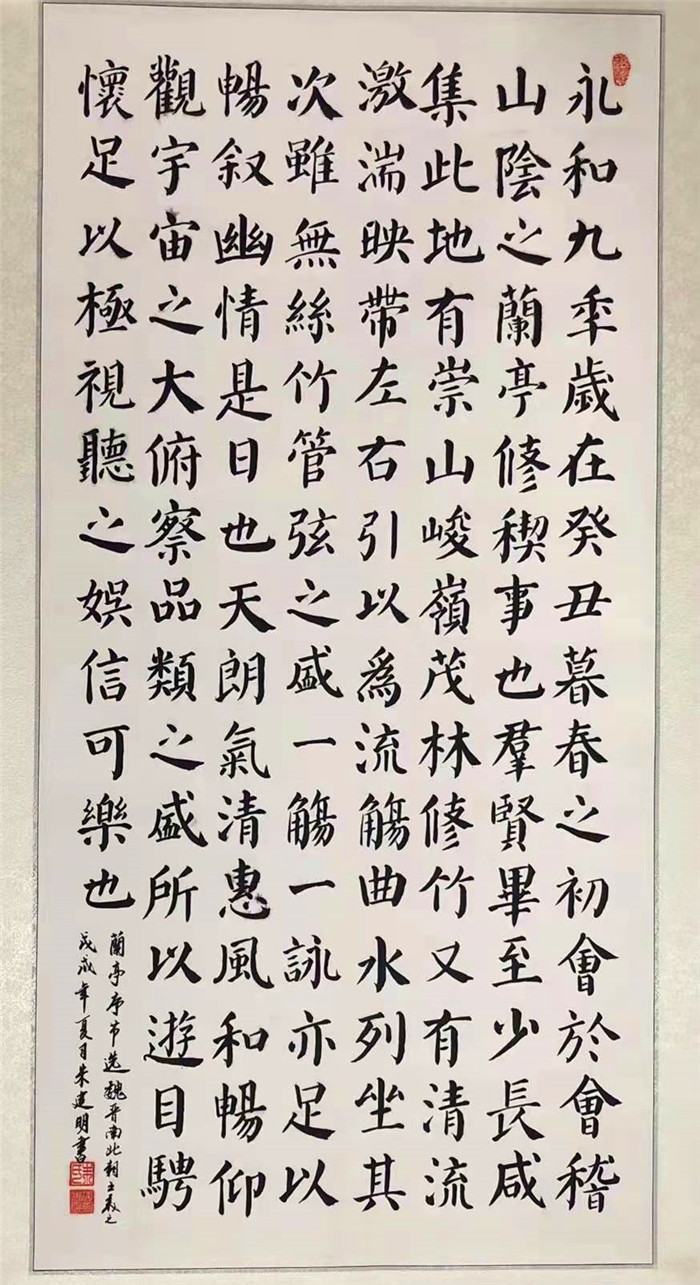 永和九秊歲在癸丑暮春之初會於會稽
山陰之蘭亭修稧事也羣賢畢至少長咸
集此地有崇山峻嶺茂林修竹又有清流
激湍映帶左右引以爲流觴曲水列坐其
次雖無絲竹管弦之盛一觴一詠亦足以
暢叙幽情是日也天朗氣清惠風和暢仰
觀宇宙之大俯察品類之盛所以遊目騁
懷足以極視聽之娛信可樂也
蘭亭序节選魏晉南北朝王羲之
戊戌年夏月朱建明書